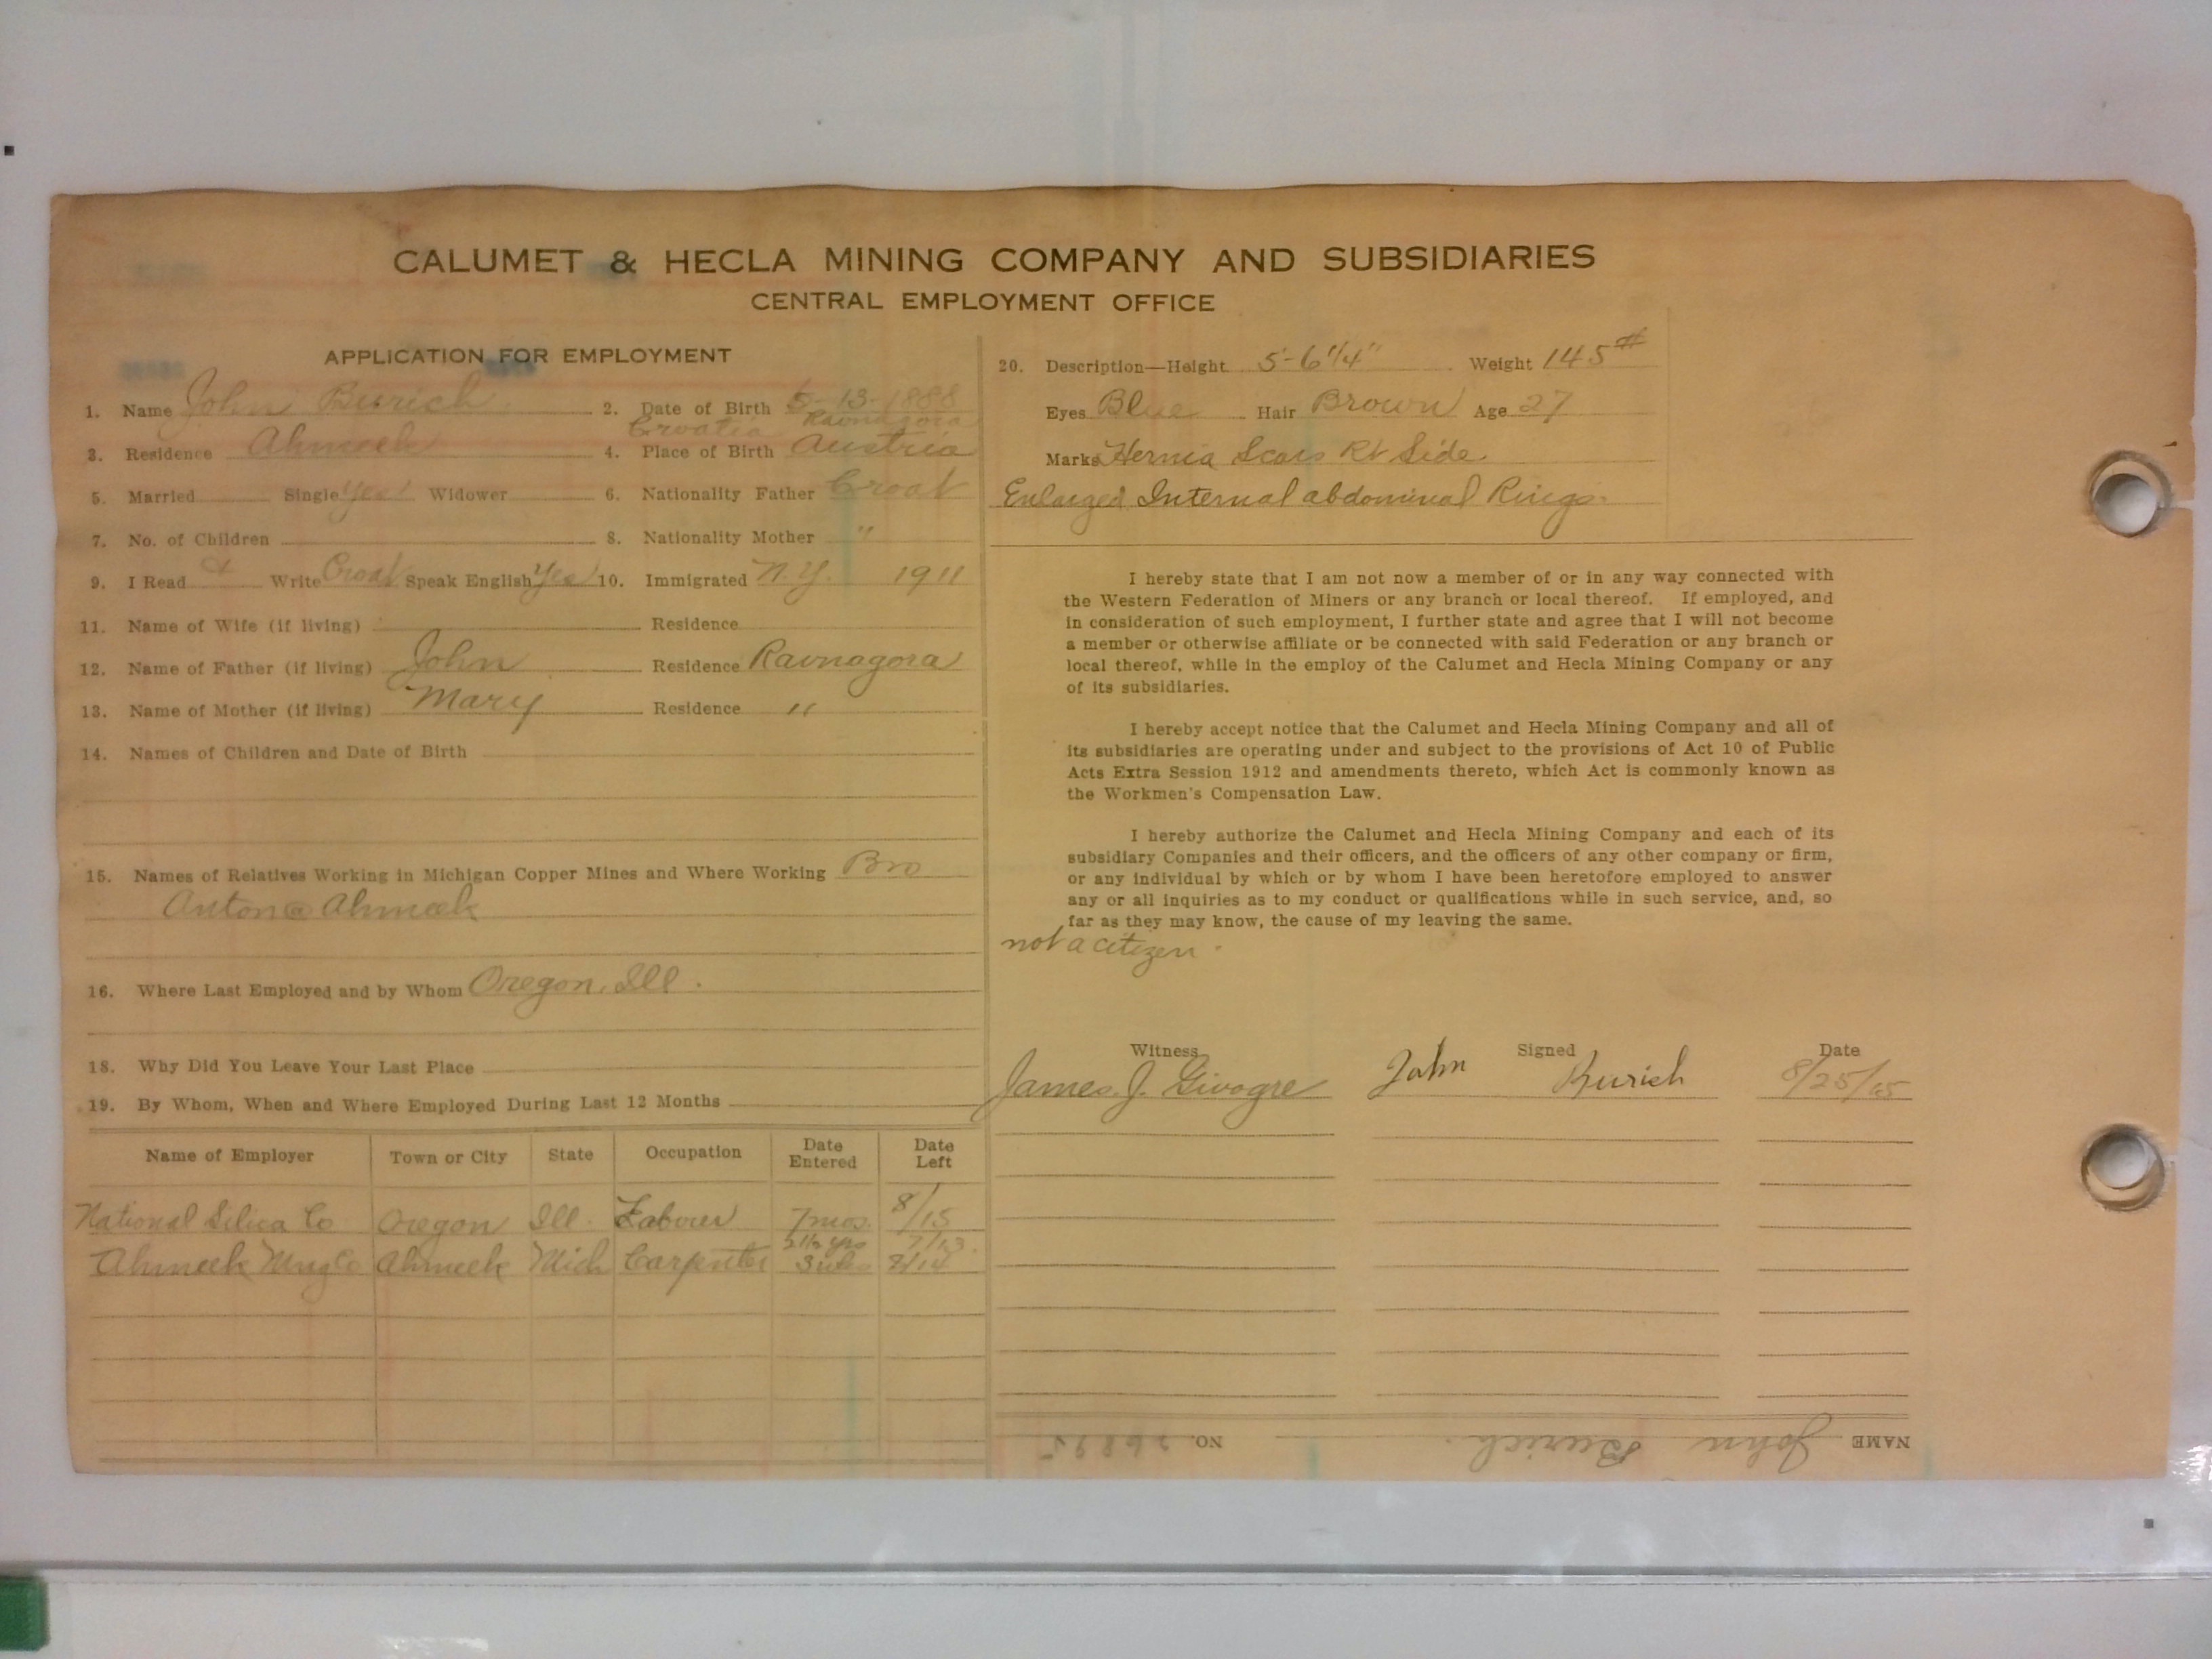 CALUMET & HECLA MINING COMPANY AND SUBSIDIARIES
CENTRAL EMPLOYMENT OFFICE
APPLICATION FOR EMPLOYMENT
1. Name John Burich 2. Date of Birth 5-13-1888
Croatia Ravnagora
3. Residence Ahmeek 4. Place of Birth Austria
5. Married Single Yes Widower 6. Nationality Father Croat
7. No. of Children 8. Nationality Mother "
9. I Read & Write Croat Speak English Yes 10. Immigrated N.Y. 1911
11. Name of Wife (if living) Residence
12. Name of Father (if living) John Residence Ravnagora
13. Name of Mother (if living) Mary Residence "
14. Names of Children and Date of Birth
15. Names of Relatives Working in Michigan Copper Mines and Where Working Bro
Anton @ Ahmeek
16. Where Last Employed and by Whom Oregon, Ill.
18. Why Did You Leave Your Last Place
19. By Whom, When and Where Employed During Last 12 Months
Name of Employer Town or City State Occupation Date Entered Date Left
National Silica Co Oregon Ill. Laborer 7 mos. 8/15
2 1/2 yrs 7/13
Ahmeek Mng Co Ahmeek Mich Carpenter 3 wks 8/14
20. Description—Height 5'-6 1/4" Weight 145#
Eyes Blue Hair Brown Age 27
Marks Hernia Scars Rt Side
Enlarged Internal abdominal Rings.
I hereby state that I am not now a member of or in any way connected with
the Western Federation of Miners or any branch or local thereof. If employed, and
in consideration of such employment, I further state and agree that I will not become
a member or otherwise affiliate or be connected with said Federation or any branch or
local thereof, while in the employ of the Calumet and Hecla Mining Company or any
of its subsidiaries.
I hereby accept notice that the Calumet and Hecla Mining Company and all of
its subsidiaries are operating under and subject to the provisions of Act 10 of Public
Acts Extra Session 1912 and amendments thereto, which Act is commonly known as
the Workmen's Compensation Law.
I hereby authorize the Calumet and Hecla Mining Company and each of its
subsidiary Companies and their officers, and the officers of any other company or firm,
or any individual by which or by whom I have been heretofore employed to answer
any or all inquiries as to my conduct or qualifications while in such service, and, so
far as they may know, the cause of my leaving the same.
not a citizen.
Witness Signed Date
James J. Givogre John Burich 8/25/15
NAME John Burich. NO.